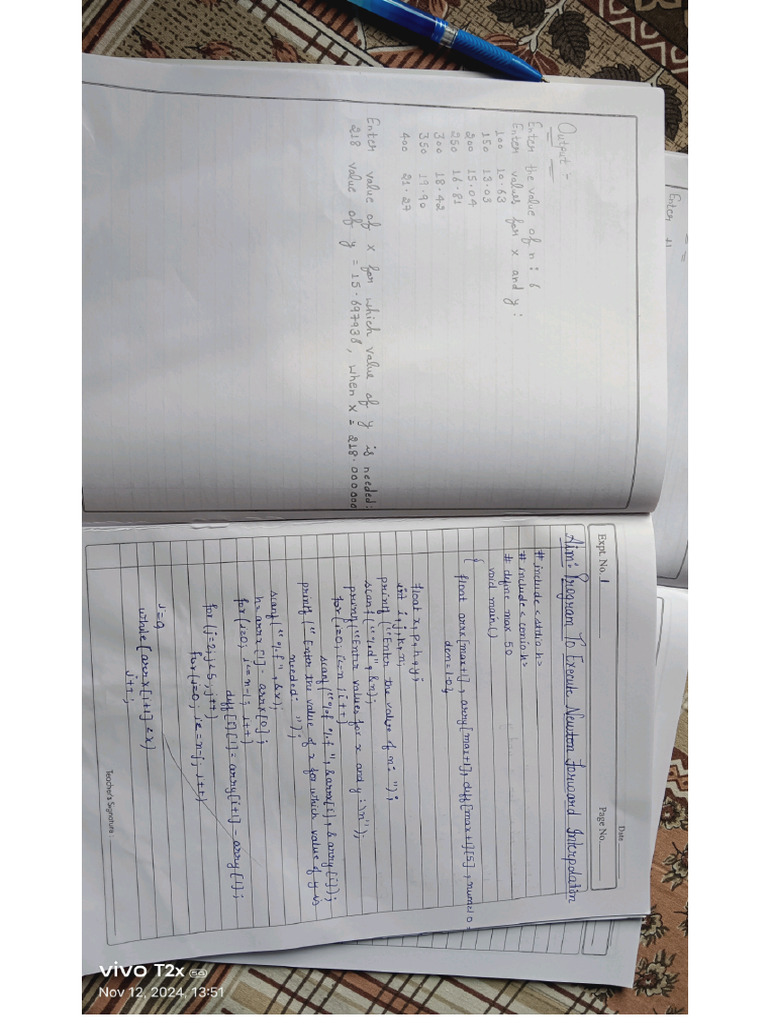 Output :-
Enter the value of n : 6
Enter values for x and y :
100 10.63
150 13.03
200 15.04
250 16.81
300 18.42
350 19.90
400 21.27
Enter value of x for which value of y is needed :
218 value of y = 15.697938, when x = 218.000000
Enter
Date
Expt. No. 1
Page No.
Aim: Program To Execute Newton Forward Interpolation
# include <stdio.h>
# include <conio.h>
# define max 50
void main()
{
float arrx[max+1], arry[max+1], diff[max+1][5], num=1.0
den=1.0;
float x, p, h, y;
int i, j, k, n;
printf ("Enter the value of n: ");
scanf ("%d", &n);
printf ("Enter values for x and y :\n");
for (i=0; i<=n; i++)
scanf ("%f %f", &arrx[i], &arry[i]);
printf (" Enter the value of x for which value of y is
needed: ");
scanf ("%f", &x);
h= arrx [1] - arrx[0];
for (i=0; i<=n-1; i++)
diff[i][1] = arry[i+1] - arry[i];
for (j=2; j<5; j++)
for (i=0; i<=n-j; i++)
while (arrx[i+1] <x)
i++;
Teacher's Signature :
vivo T2x 5G
Nov 12, 2024, 13:51